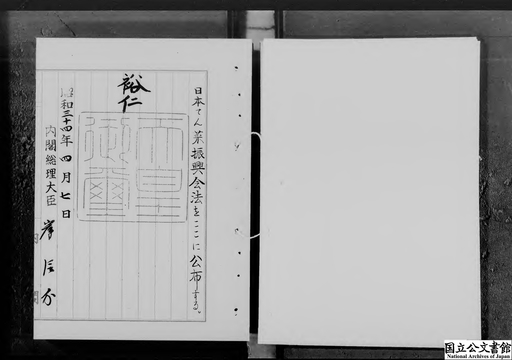 日本てん菜振興会法をここに公布する。
裕仁
天皇
御璽
昭和三十四年四月七日
内閣総理大臣 岸信介
国立公文書館
National Archives of Japan